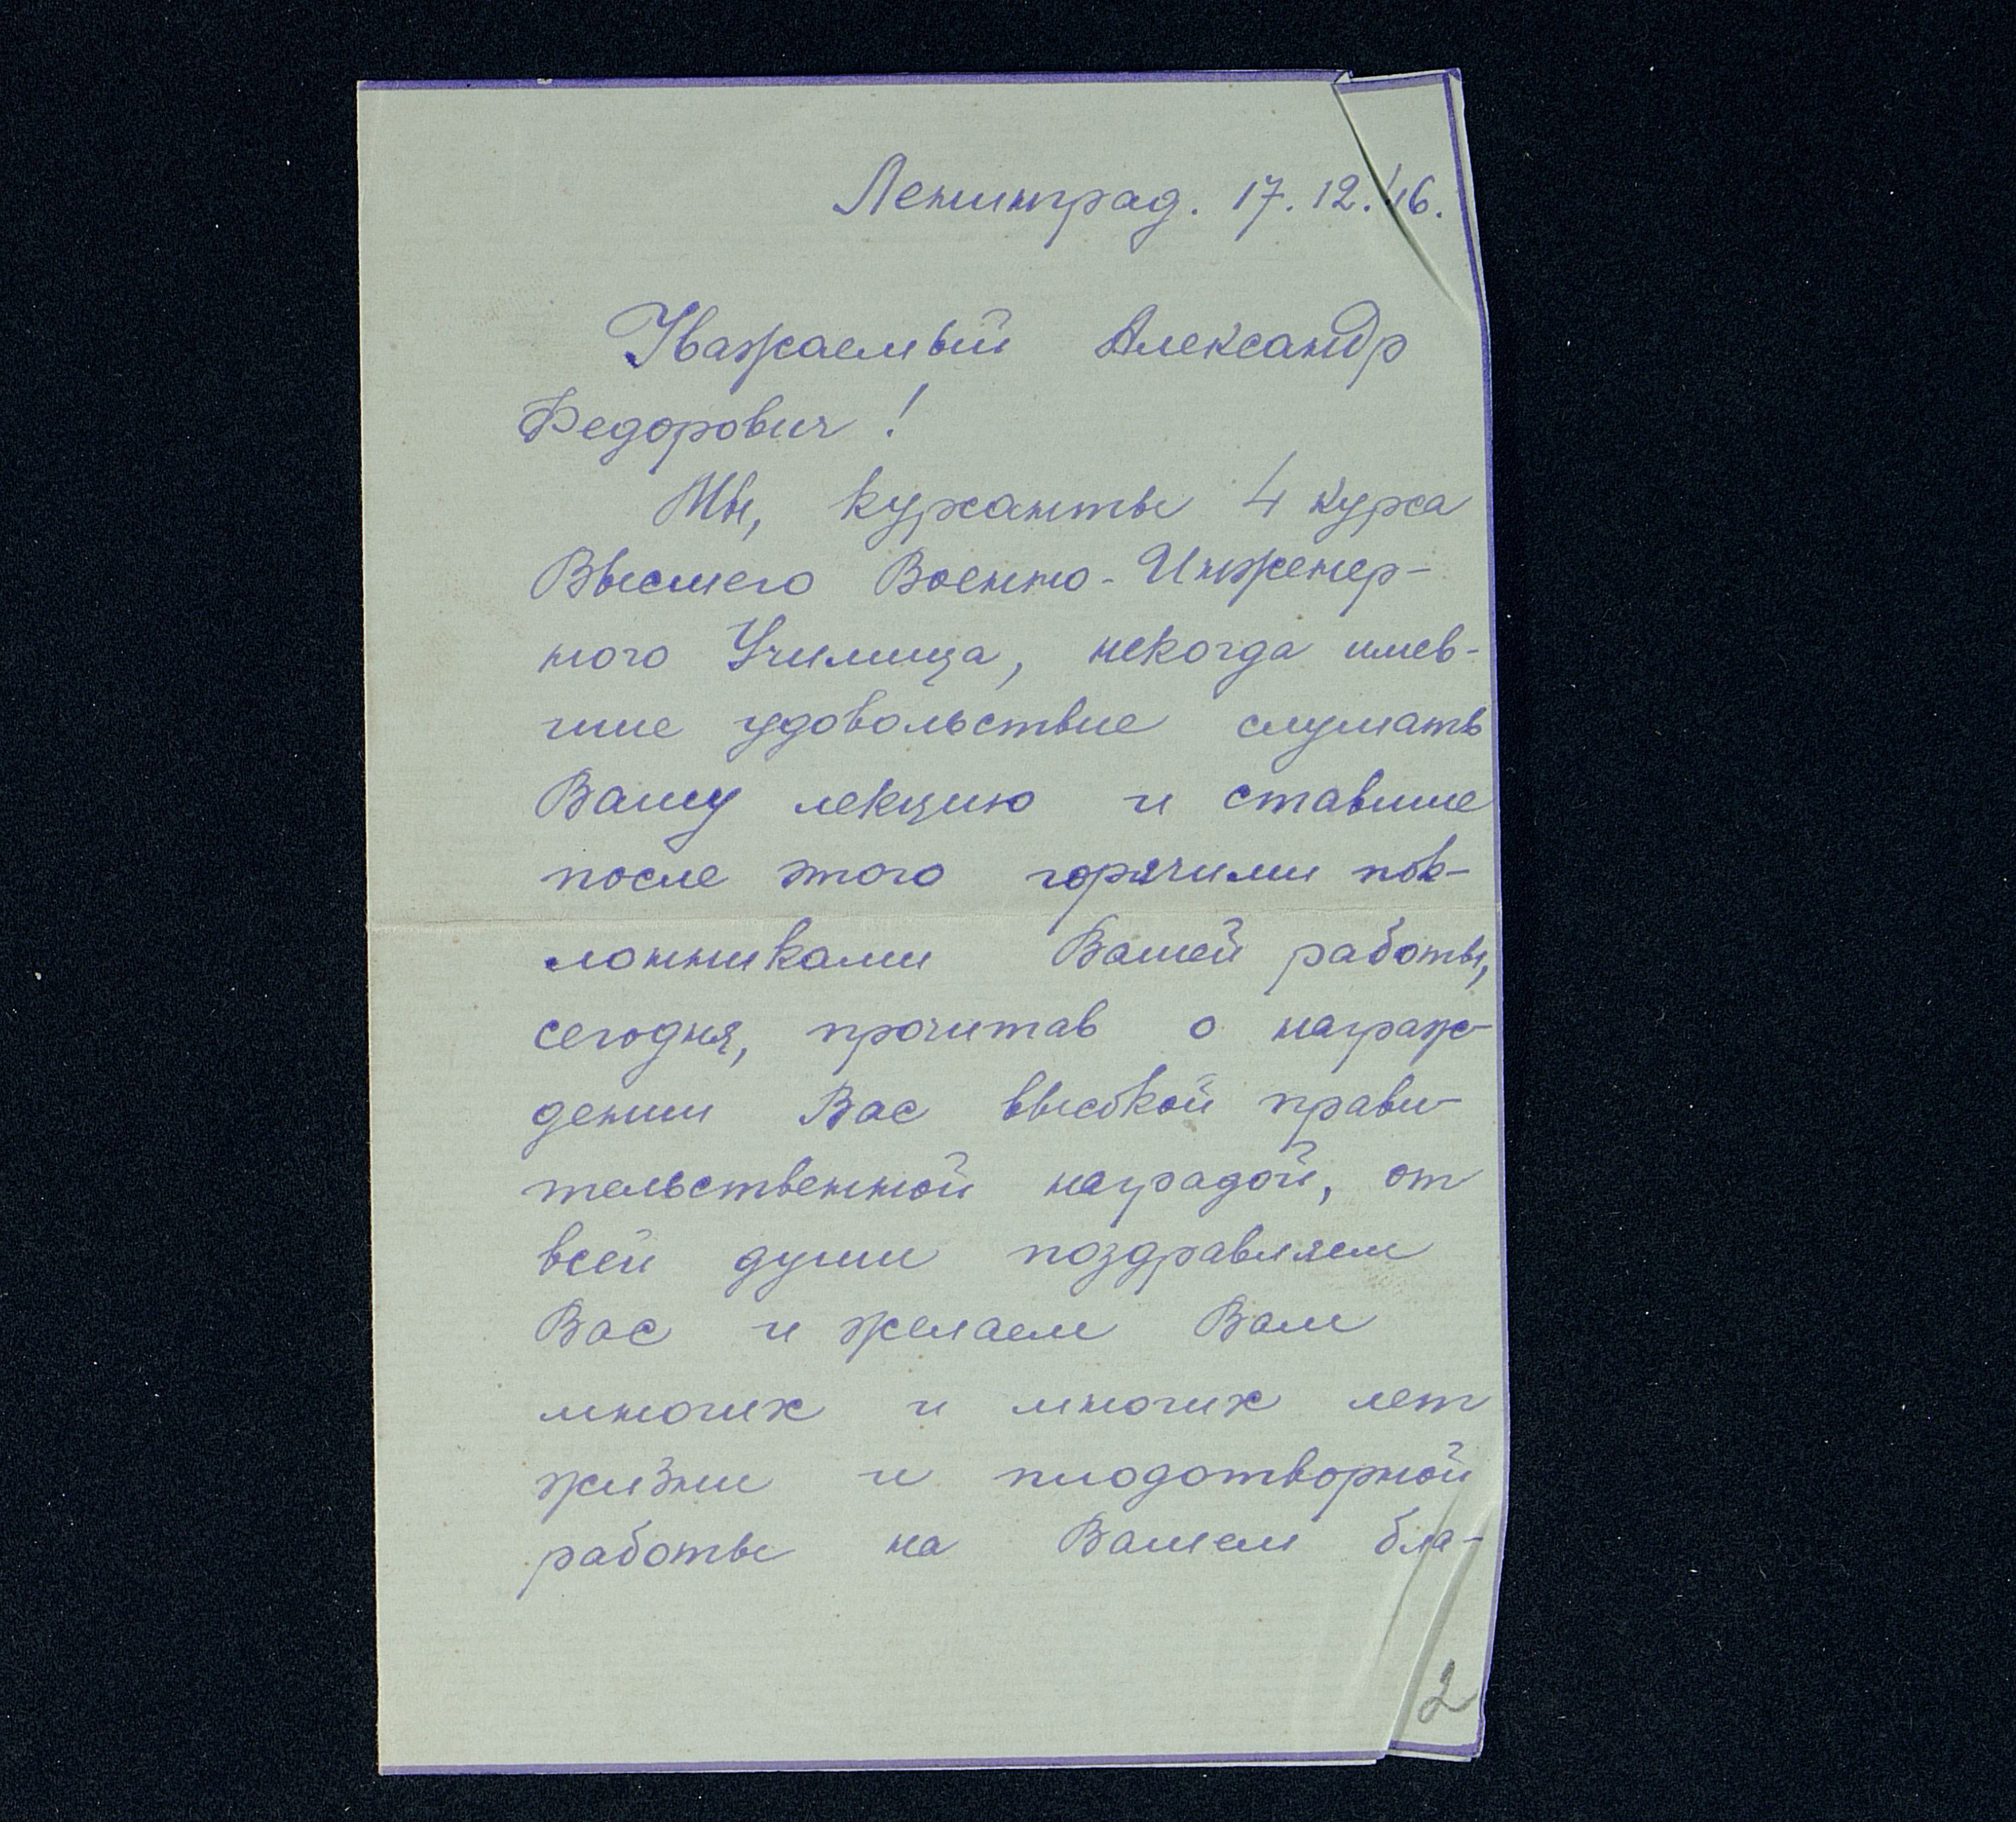 Ленинград. 17.12.46.
Уважаемый Александр
Федорович!
Мы, курсанты 4 курса
Высшего Военно-Инженер-
ного Училища, некогда имев-
шие удовольствие слушать
Вашу лекцию и ставшие
после этого горячими пок-
лонниками Вашей работы,
сегодня, прочитав о награж-
дении Вас высокой прави-
тельственной наградой, от
всей души поздравляем
Вас и желаем Вам
многих и многих лет
жизни и плодотворной
работы на Вашем бла-
2